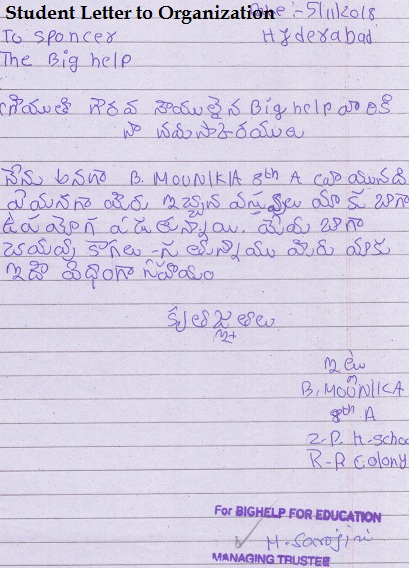 Student Letter to Organization
Date :- 5/11/2018
To Sponcer
Hyderabad
The Big help
గౌరవ Big help వారికి
నా నమస్కారములు
నేను అనగా B. MOUNIKA 8th A
ఏమనగా మీరు ఇచ్చిన వస్తువులు మాకు బాగా
ఉపయోగ పడుతున్నాయి. మేము బాగా
మీరు మాకు
ఇదే విధంగా సహాయం
కృతజ్ఞతలు
ఇట్లు
B. MOUNIKA
8th A
Z.P. H-School
R-R Colony
For BIGHELP FOR EDUCATION
H. Sarojini
MANAGING TRUSTEE